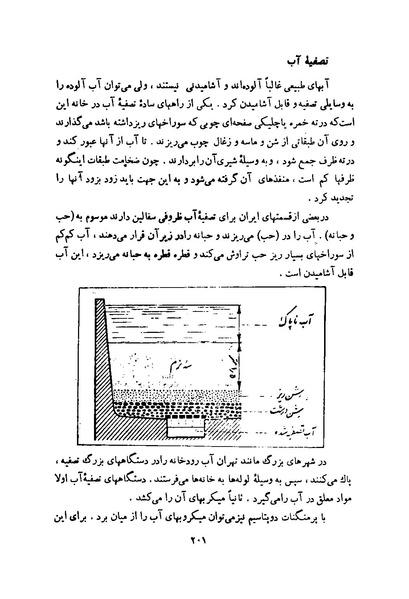 تصفیهٔ آب
آبهای طبیعی غالباً آلوده‌اند و آشامیدنی نیستند، ولی می‌توان آب آلوده را
به وسایلی تصفیه و قابل آشامیدن کرد. یکی از راههای سادهٔ تصفیهٔ آب در خانه این
است که در ته خمره یا چلیکی صفحه‌ای چوبی که سوراخهای ریز داشته باشد می‌گذارند
و روی آن طبقاتی از شن و ماسه و زغال چوب می‌ریزند. تا آب از آنها عبور کند و
در ته ظرف جمع شود، و به وسیلهٔ شیری آن را بردارند. چون ضخامت طبقات اینگونه
ظرفها کم است، منفذهای آن گرفته می‌شود و به این جهت باید زود بزود آنها را
تجدید کرد.
در بعضی از قسمتهای ایران برای تصفیهٔ آب ظروفی سفالین دارند موسوم به (حب
و حبانه). آب را در (حب) می‌ریزند و حبانه را در زیر آن قرار می‌دهند، آب کم‌کم
از سوراخهای بسیار ریز حب تراوش می‌کند و قطره قطره به حبانه می‌ریزد، این آب
قابل آشامیدن است.
آب ناپاک
نرم
شن ریز
شن درشت
آب تصفیه شده
در شهرهای بزرگ مانند تهران آب رودخانه را در دستگاههای بزرگ تصفیه،
پاک می‌کنند، سپس به وسیلهٔ لوله‌ها به خانه‌ها می‌فرستند. دستگاههای تصفیهٔ آب اولا
مواد معلق در آب را می‌گیرد. ثانیاً میکربهای آن را می‌کشد.
با پرمنگنات دوپتاسیم نیز می‌توان میکروبهای آب را از میان برد. برای این
۲۰۱